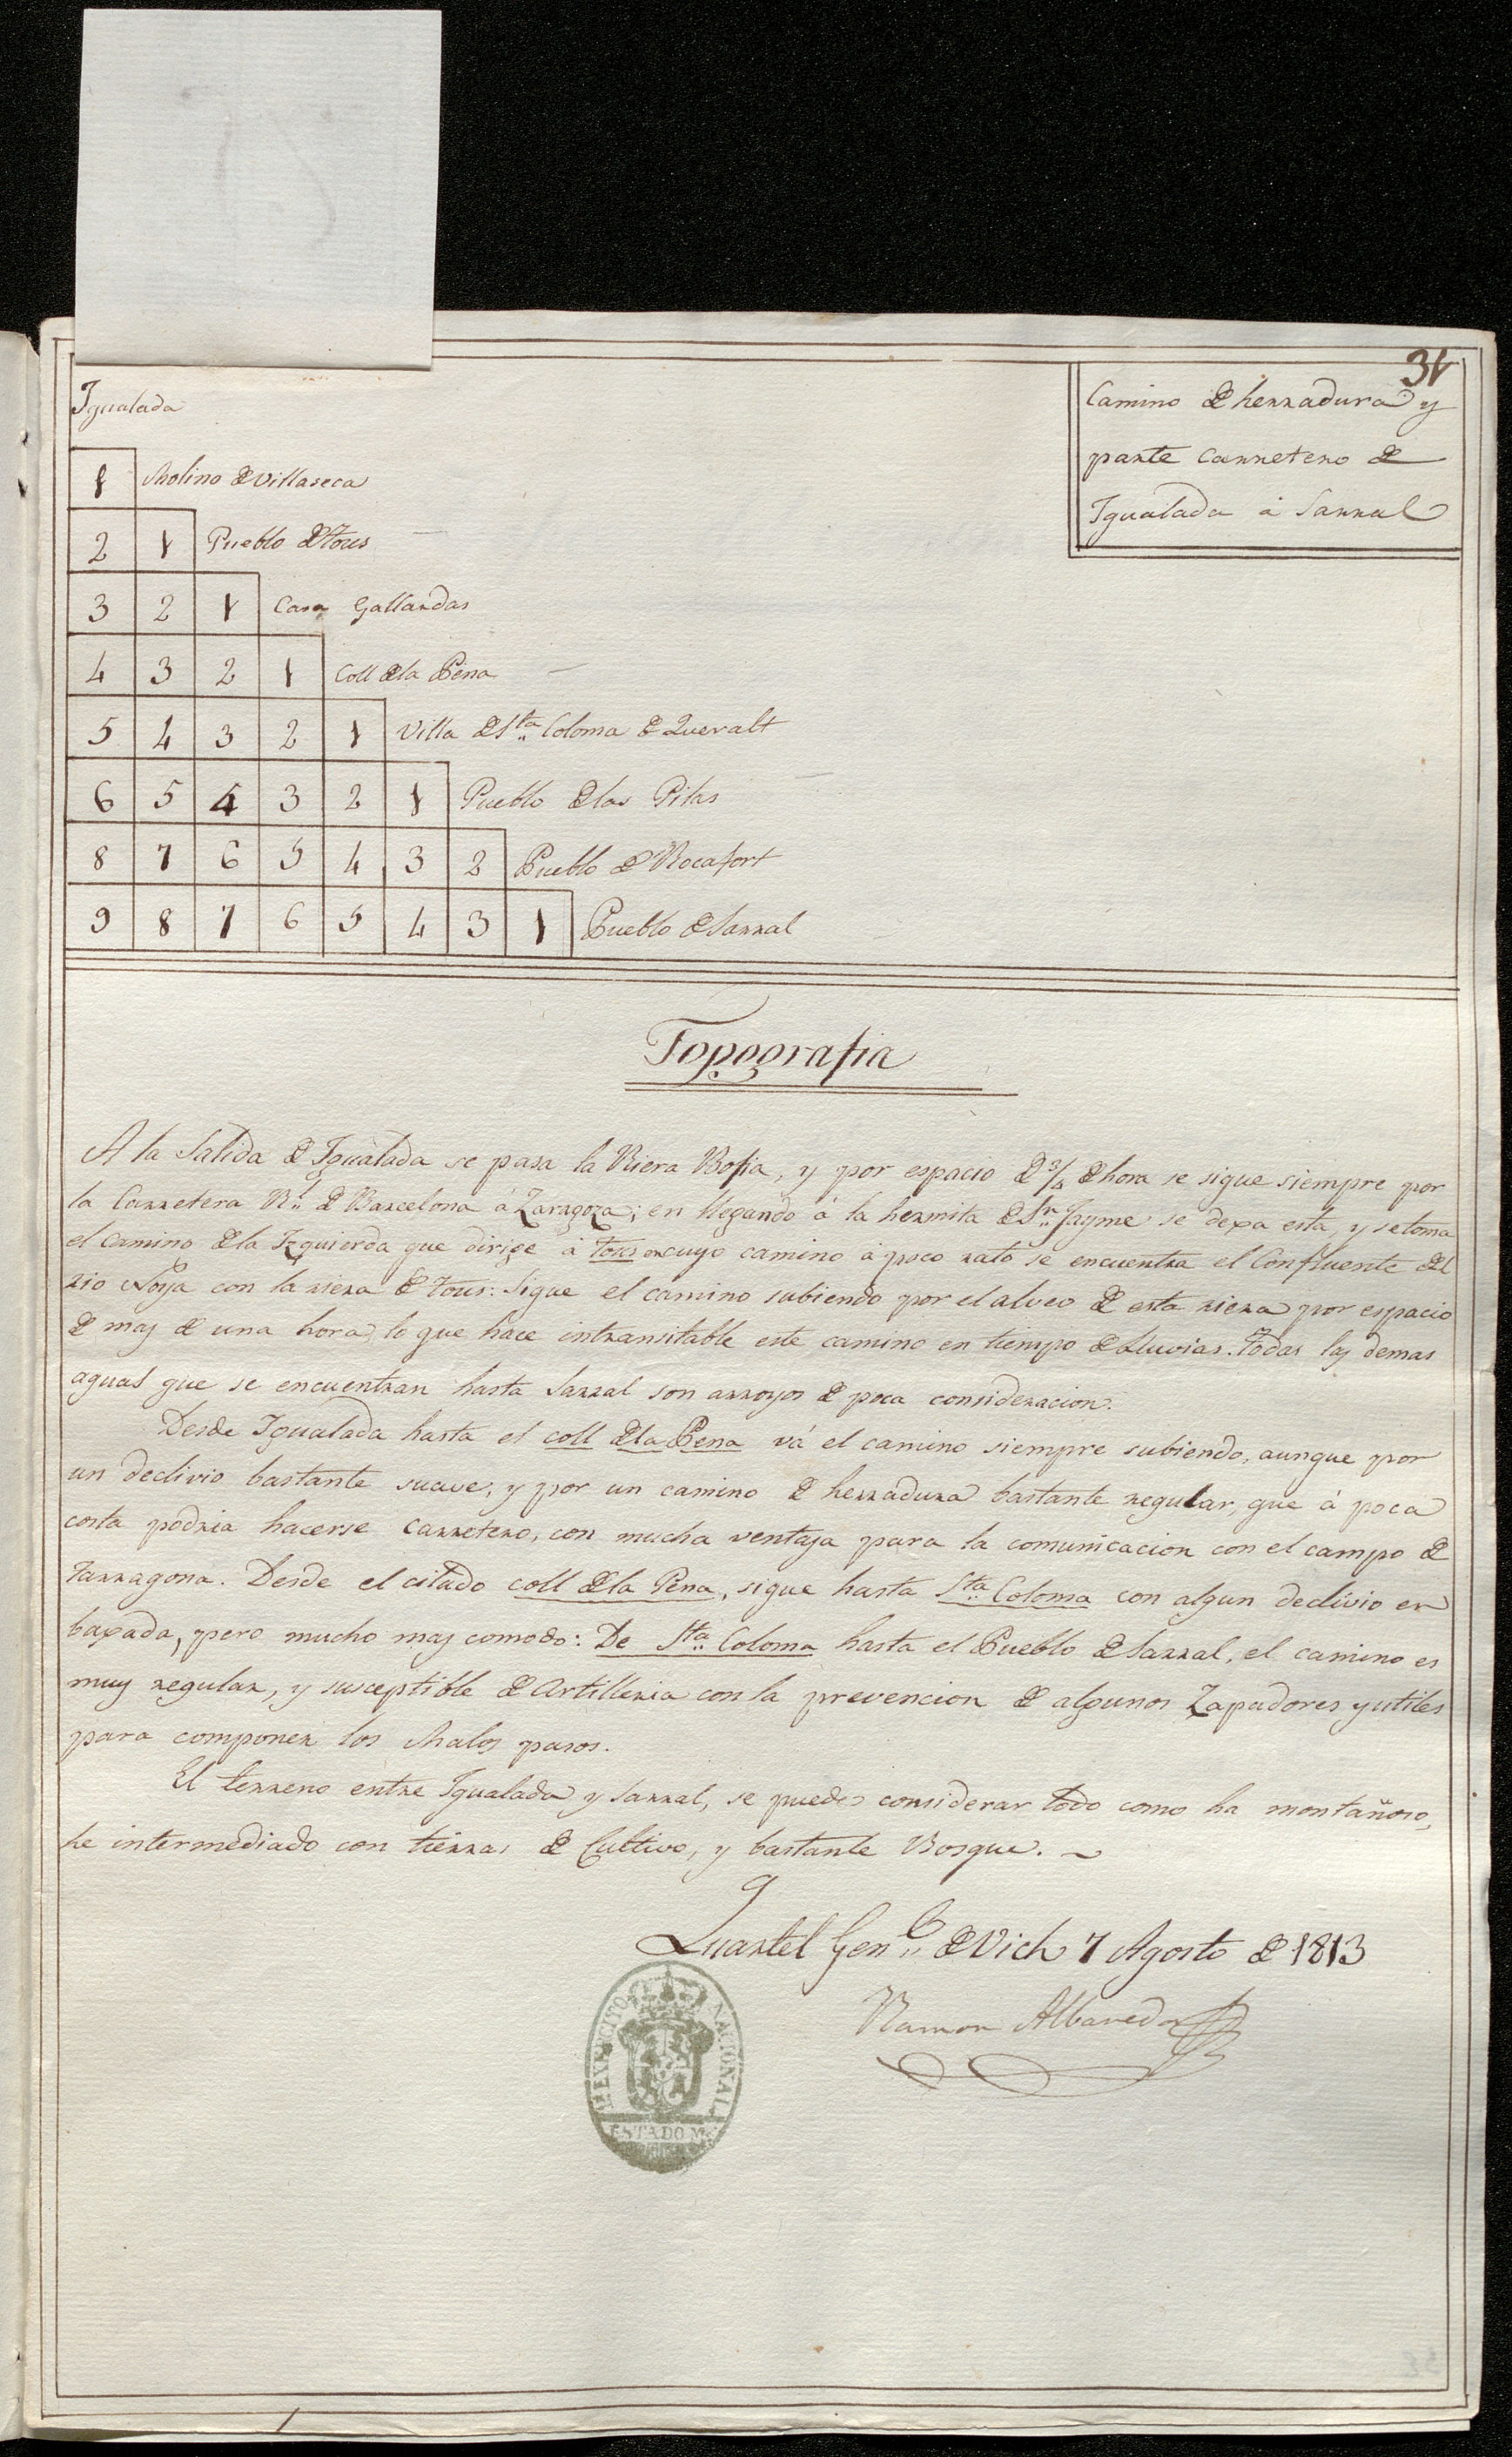 31
Camino de herradura y
parte carretero de
Igualada á Sarral
Igualada
1 Molino de Villaseca
2 1 Pueblo de Tous
3 2 1 Casa Gallardas
4 3 2 1 Coll de la Pena
5 4 3 2 1 Villa de Sta. Coloma de Queralt
6 5 4 3 2 1 Pueblo de las Pilas
8 7 6 5 4 3 2 Pueblo de Rocafort
9 8 7 6 5 4 3 1 Pueblo de Sarral
Topografia
A la Salida de Igualada se pasa la Riera Rofia, y por espacio de 3/4 de hora se sigue siempre por
la Carretera Rl. de Barcelona á Zaragoza; en llegando á la hermita de Sn. Jayme se dexa esta, y se toma
el Camino de la Izquierda que dirige á Tous en cuyo camino á poco rato se encuentra el Confluente del
rio Noya con la riera de Tous: Sigue el camino subiendo por el alveo de esta riera por espacio
de mas de una hora, lo que hace intransitable este camino en tiempo de Lluvias. Todas las demas
aguas que se encuentran hasta Sarral son arroyos de poca consideracion.
Desde Igualada hasta el coll de la Pena vá el camino siempre subiendo, aunque por
un declivio bastante suave, y por un camino de herradura bastante regular, que á poca
costa podria hacerse carretero, con mucha ventaja para la comunicacion con el campo de
Tarragona. Desde el citado coll de la Pena, sigue hasta Sta. Coloma con algun declivio en
baxada, pero mucho mas comodo: De Sta. Coloma hasta el Pueblo de Sarral, el camino es
muy regular, y susceptible de Artilleria con la prevencion de algunos Zapadores y utiles
para componer los Malos pasos.
El terreno entre Igualada y Sarral, se puede considerar todo como ha montañoso,
he intermediado con tierras de Cultivo, y bastante Bosque.
Quartel Genl. de Vich 7 Agosto de 1813
Ramon Albareda
EXERCITO NACIONAL
ESTADO M